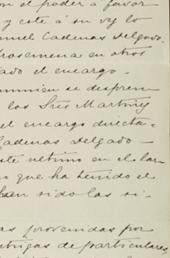 en el poder a favor
y este á su vez lo
nuel Cadenas Delgado.
rosemena en otros
ado el encargo.
mmien se despren
los Sres Martinez
el encargo directa-
Cadenas Delgado
ste ultimo en el lar-
o que ha tenido el
han sido las si-
as provenidas por
trigas de particulares,